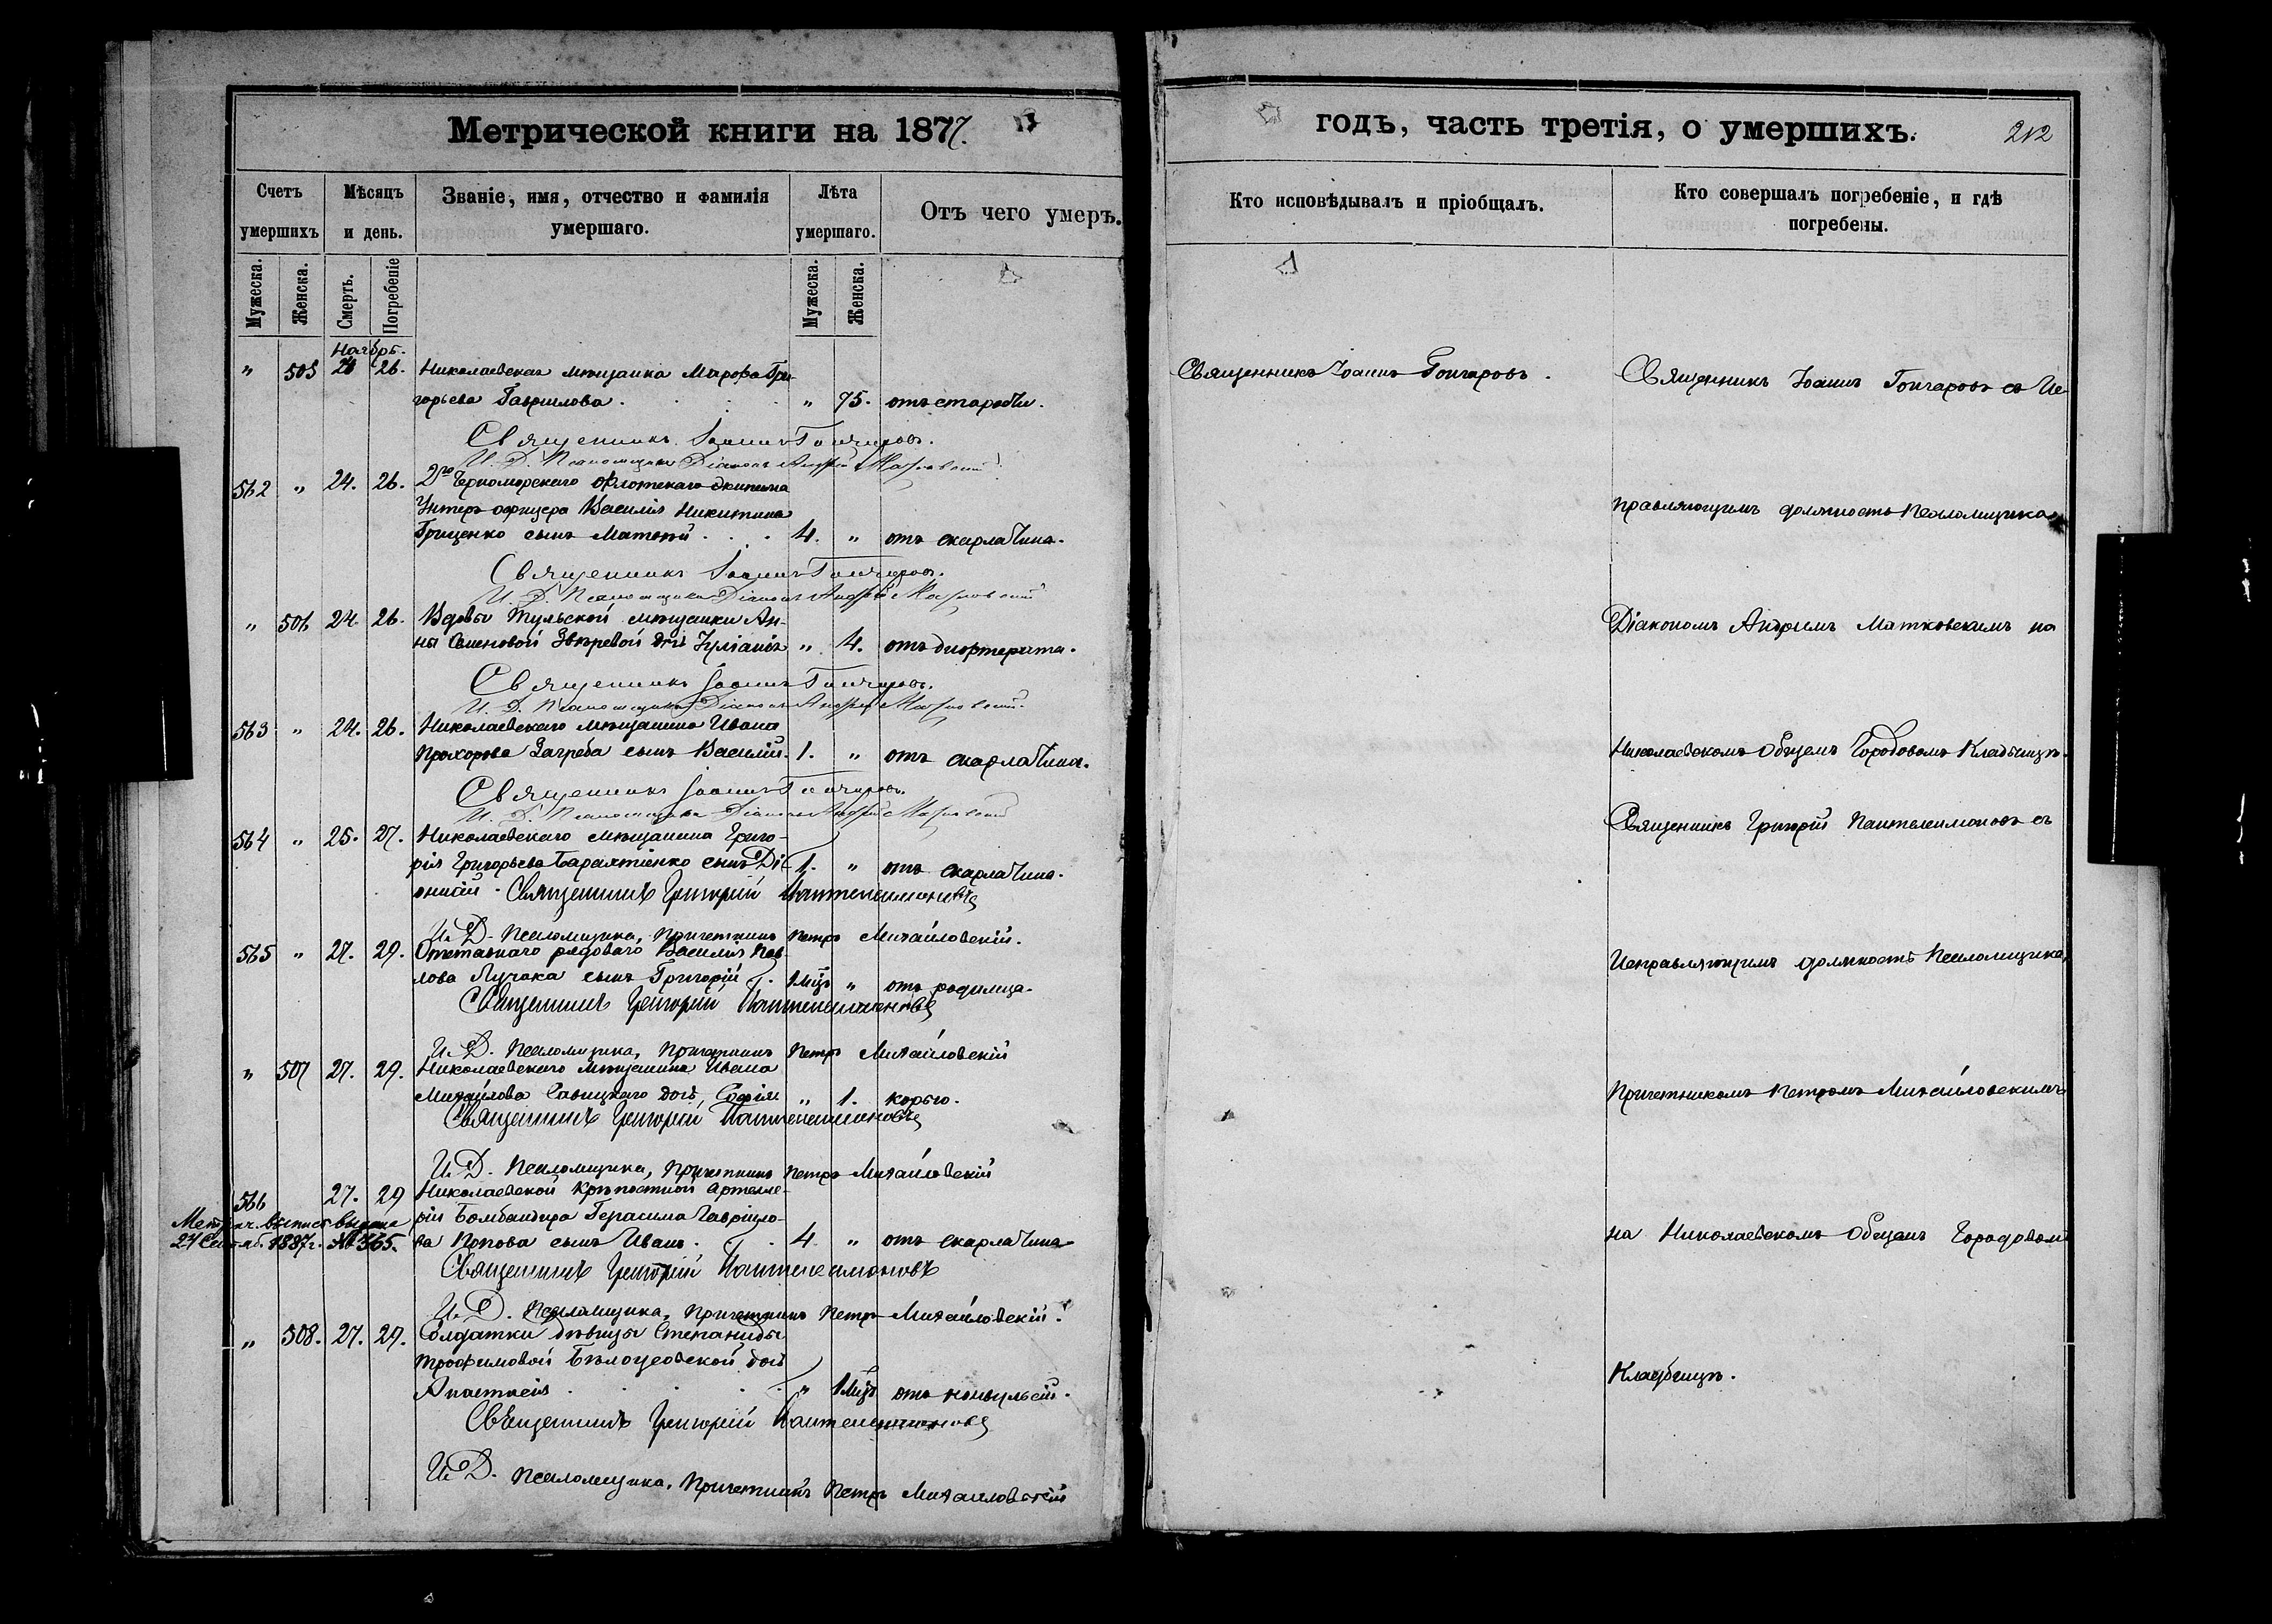 Метрической книги на 1877.
Счетъ умершихъ
Мѣсяцъ и день.
Званіе, имя, отчество и фамилія умершаго.
Лѣта умершаго.
Отъ чего умеръ.
Мужеска.
Женска.
Смерть.
Погребеніе
Мужеска.
Женска.
Ноябрь.
" 505 26. Николаевская мѣщанка Марфа Гри-
горьева Гаврилова . " 75. отъ старости.
Священникъ Іоаннъ Гончаровъ.
И. Д. Псаломщика Діаконъ Андрей
562 " 24. 26. 2го Черноморскаго флотскаго экипажа
Унтеръ офицера Василія Никитина
Гриценко сынъ Матвѣй . . . 4. " отъ скарлатина.
Священникъ Іоаннъ Гончаровъ.
И. Д. Псаломщика Діаконъ Андрей
" 506 24. 26. Вдовы Тульской мѣщанки Ан-
ны Семеновой Звѣревой дчь Іуліанія " 4. отъ дифтерита.
Священникъ Іоаннъ Гончаровъ.
И. Д. Псаломщика Діаконъ Андрей
563 " 24. 26. Николаевскаго мѣщанина Ивана
Прохорова Загреба сынъ Василій. 1. " отъ скарлатина.
Священникъ Іоаннъ Гончаровъ.
И. Д. Псаломщика Діаконъ Андрей
564 " 25. 27. Николаевскаго мѣщанина Григо-
рія Григорьева сынъ Ді- 1. " отъ скарлатина.
онисій. Священникъ Григорій Пантелеимоновъ
И. Д. Псаломщика, Причетникъ Петръ Михайловскій.
565 " 27. 29. Отставнаго рядоваго Василія Пав-
лова Лучака сынъ Григорій . 1 мцъ " отъ родимца.
Священникъ Григорій Пантелеимоновъ
И. Д. Псаломщика, Причетникъ Петръ Михайловскій
" 507 27. 29. Николаевскаго мѣщанина Ивана
Михайлова Савицкаго дочь, Софія " 1. корью.
Священникъ Григорій Пантелеимоновъ
И. Д. Псаломщика, Причетникъ Петръ Михайловскій
566 27. 29 Николаевской крѣпостной артилле-
ріи Бомбандира Герасима Гаврило-
ва Попова сынъ Иванъ . . . 4 " отъ скарлатина
Метрич. выпись выдана
27 Сентяб. 1887 г. № 365.
Священникъ Григорій Пантелеимоновъ
И. Д. Псаломщика, Причетникъ Петръ Михайловскій.
" 508. 27. 29. Солдатки дѣвицы Степаниды
Трофимовой дочь
Анастасія . . . . " 1 мцъ отъ конвульсій.
Священникъ Григорій Пантелеимоновъ
И. Д. Псаломщика, Причетникъ Петръ Михайловскій
годъ, часть третія, о умершихъ. 212
Кто исповѣдывалъ и пріобщалъ.
Кто совершалъ погребеніе, и гдѣ погребены.
Священникъ Іоаннъ Гончаровъ.
Священникъ Іоаннъ Гончаровъ съ Ис-
правляющимъ должность Псаломщика
Діакономъ Андреемъ Матковскимъ на
Николаевскомъ Общемъ Городовомъ Кладбищѣ.
Священникъ Григорій Пантелеимоновъ съ
Исправляющимъ должность Псаломщика,
Причетникомъ Петромъ Михайловскимъ
на Николаевскомъ Общемъ Городовомъ
Кладбищѣ.